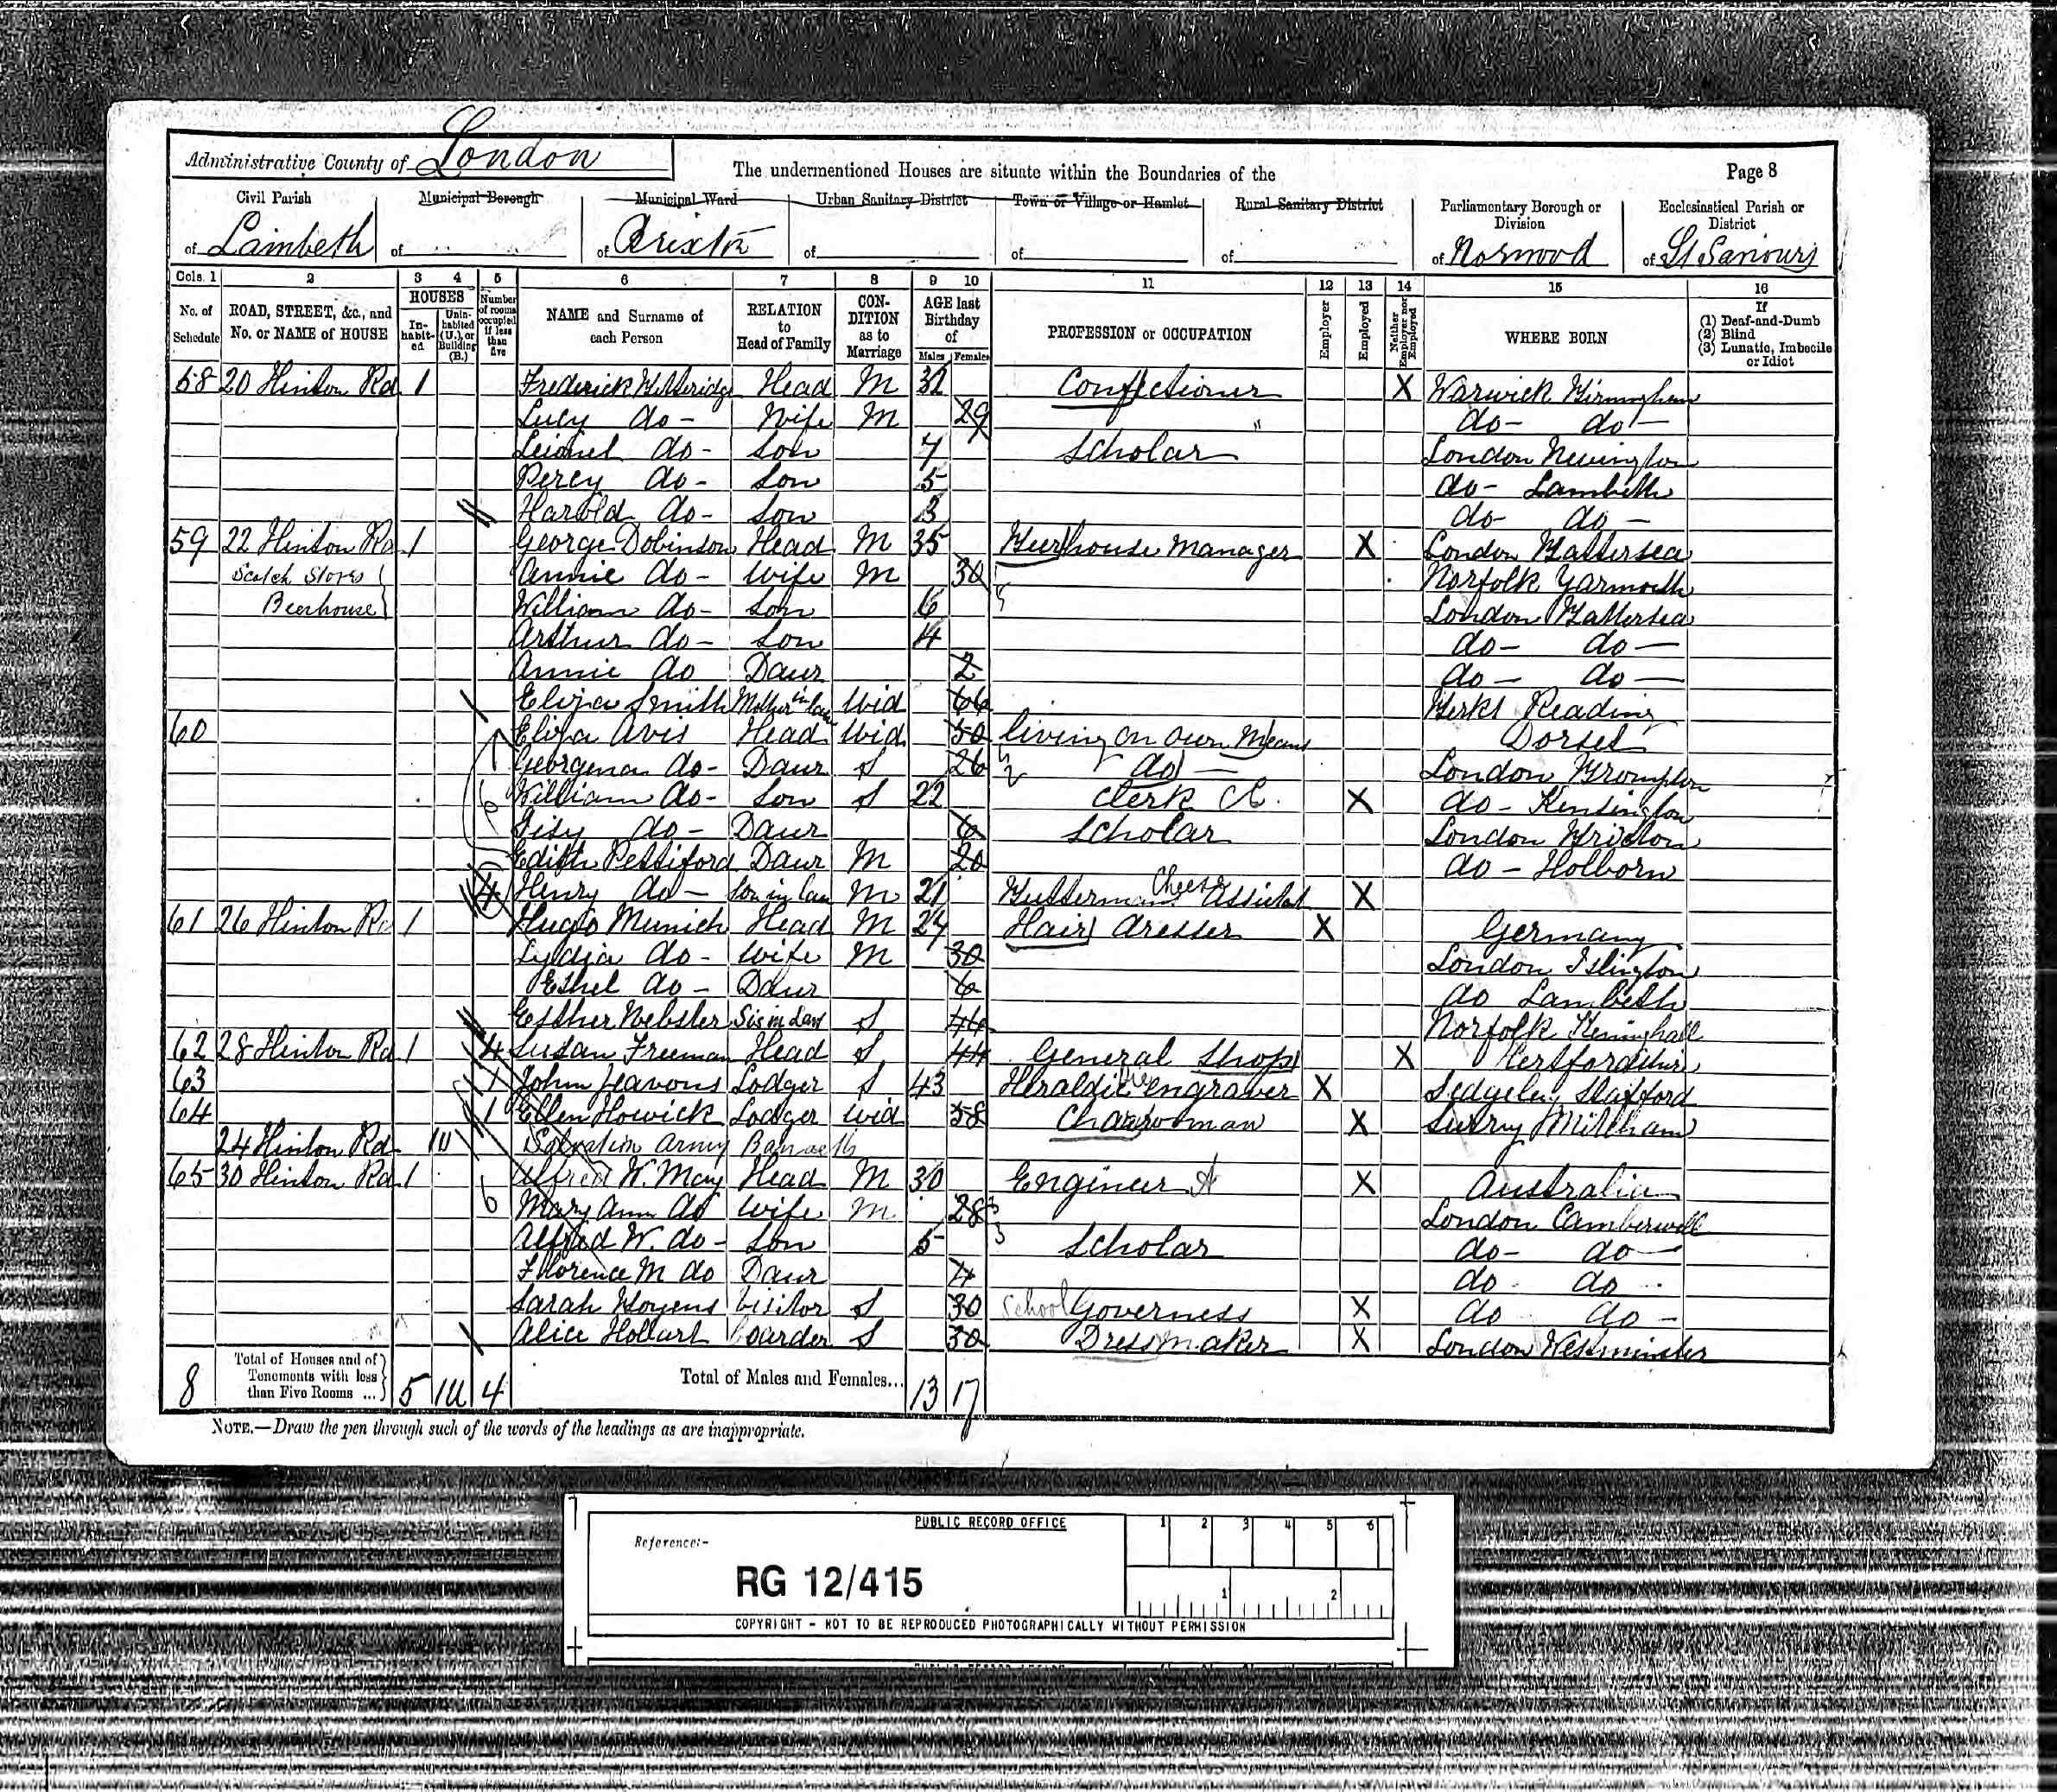 Administrative County of London
The undermentioned Houses are situate within the Boundaries of the
Page 8
Civil Parish of Lambeth
Municipal Borough of
Municipal Ward of Brixton
Urban Sanitary District of
Town or Village or Hamlet of
Rural Sanitary District of
Parliamentary Borough or Division of Norwood
Ecclesiastical Parish or District of St Saviours
Cols. 1 2 3 4 5 6 7 8 9 10 11 12 13 14 15 16
No. of Schedule
ROAD, STREET, &c., and No. or NAME of HOUSE
HOUSES
In-habit-ed
Unin-habited (U.), or Building (B.)
Number of rooms occupied if less than five
NAME and Surname of each Person
RELATION to Head of Family
CON-DITION as to Marriage
AGE last Birthday of
Males Females
PROFESSION or OCCUPATION
Employer
Employed
Neither Employer nor Employed
WHERE BORN
If (1) Deaf-and-Dumb (2) Blind (3) Lunatic, Imbecile or Idiot
58 20 Hinton Rd 1 Frederick Head M 32 Confectioner X Warwick Birmingham
Lucy do - Wife M 29 do - do -
Leionel do - Son 7 Scholar London Newington
Percy do - Son 5 do - Lambeth
Harold do - Son 3 do - do -
59 22 Hinton Rd 1 George Dobinson Head M 35 Beerhouse Manager X London Battersea
Scotch Stores Annie do - Wife M 30 Norfolk Yarmouth
Beerhouse William do - Son 6 London Battersea
Arthur do - Son 4 do - do -
Annie do Daur 2 do - do -
Eliza Smith Mother in law Wid 66 Berks Reading
60 Eliza Avis Head Wid 50 living on own Means Dorset
Georgena do - Daur S 26 do - London Brompton
William do - Son S 22 Clerk X do - Kensington
do - Daur 6 Scholar London Brixton
Edith Pettiford Daur M 20 do - Holborn
4 Henry do - Son in law M 21 Butterman Cheese Assistt X
61 26 Hinton Rd 1 Hugo Munich Head M 24 Hair dresser X Germany
Lydia do - Wife M 30 London Islington
Ethel do - Daur 6 do Lambeth
Esther Webster Sis in law S 44 Norfolk Kenninghall
62 28 Hinton Rd 1 4 Susan Freeman Head S 44 General Shop X Hertfordshire
63 1 John Jeavons Lodger S 43 Heraldic engraver X Sedgeley Stafford
64 1 Ellen Howick Lodger Wid 58 Charwoman X Surry Mitcham
24 Hinton Rd 1U Salvation Army
65 30 Hinton Rd 1 Alfred W. May Head M 30 Engineer X Australia
6 Mary Ann do Wife M 28 London Camberwell
Alfred W. do - Son 5 Scholar do - do -
Florence M do Daur 4 do - do -
Sarah Visitor S 30 School Governess X do do -
Alice Hollart boarder S 30 Dressmaker X London Westminster
8 Total of Houses and of Tenements with less than Five Rooms ... 5 1U 4 Total of Males and Females... 13 17
NOTE.—Draw the pen through such of the words of the headings as are inappropriate.
PUBLIC RECORD OFFICE
1 2 3 4 5 6
Reference:-
RG 12/415
1 2
COPYRIGHT - NOT TO BE REPRODUCED PHOTOGRAPHICALLY WITHOUT PERMISSION